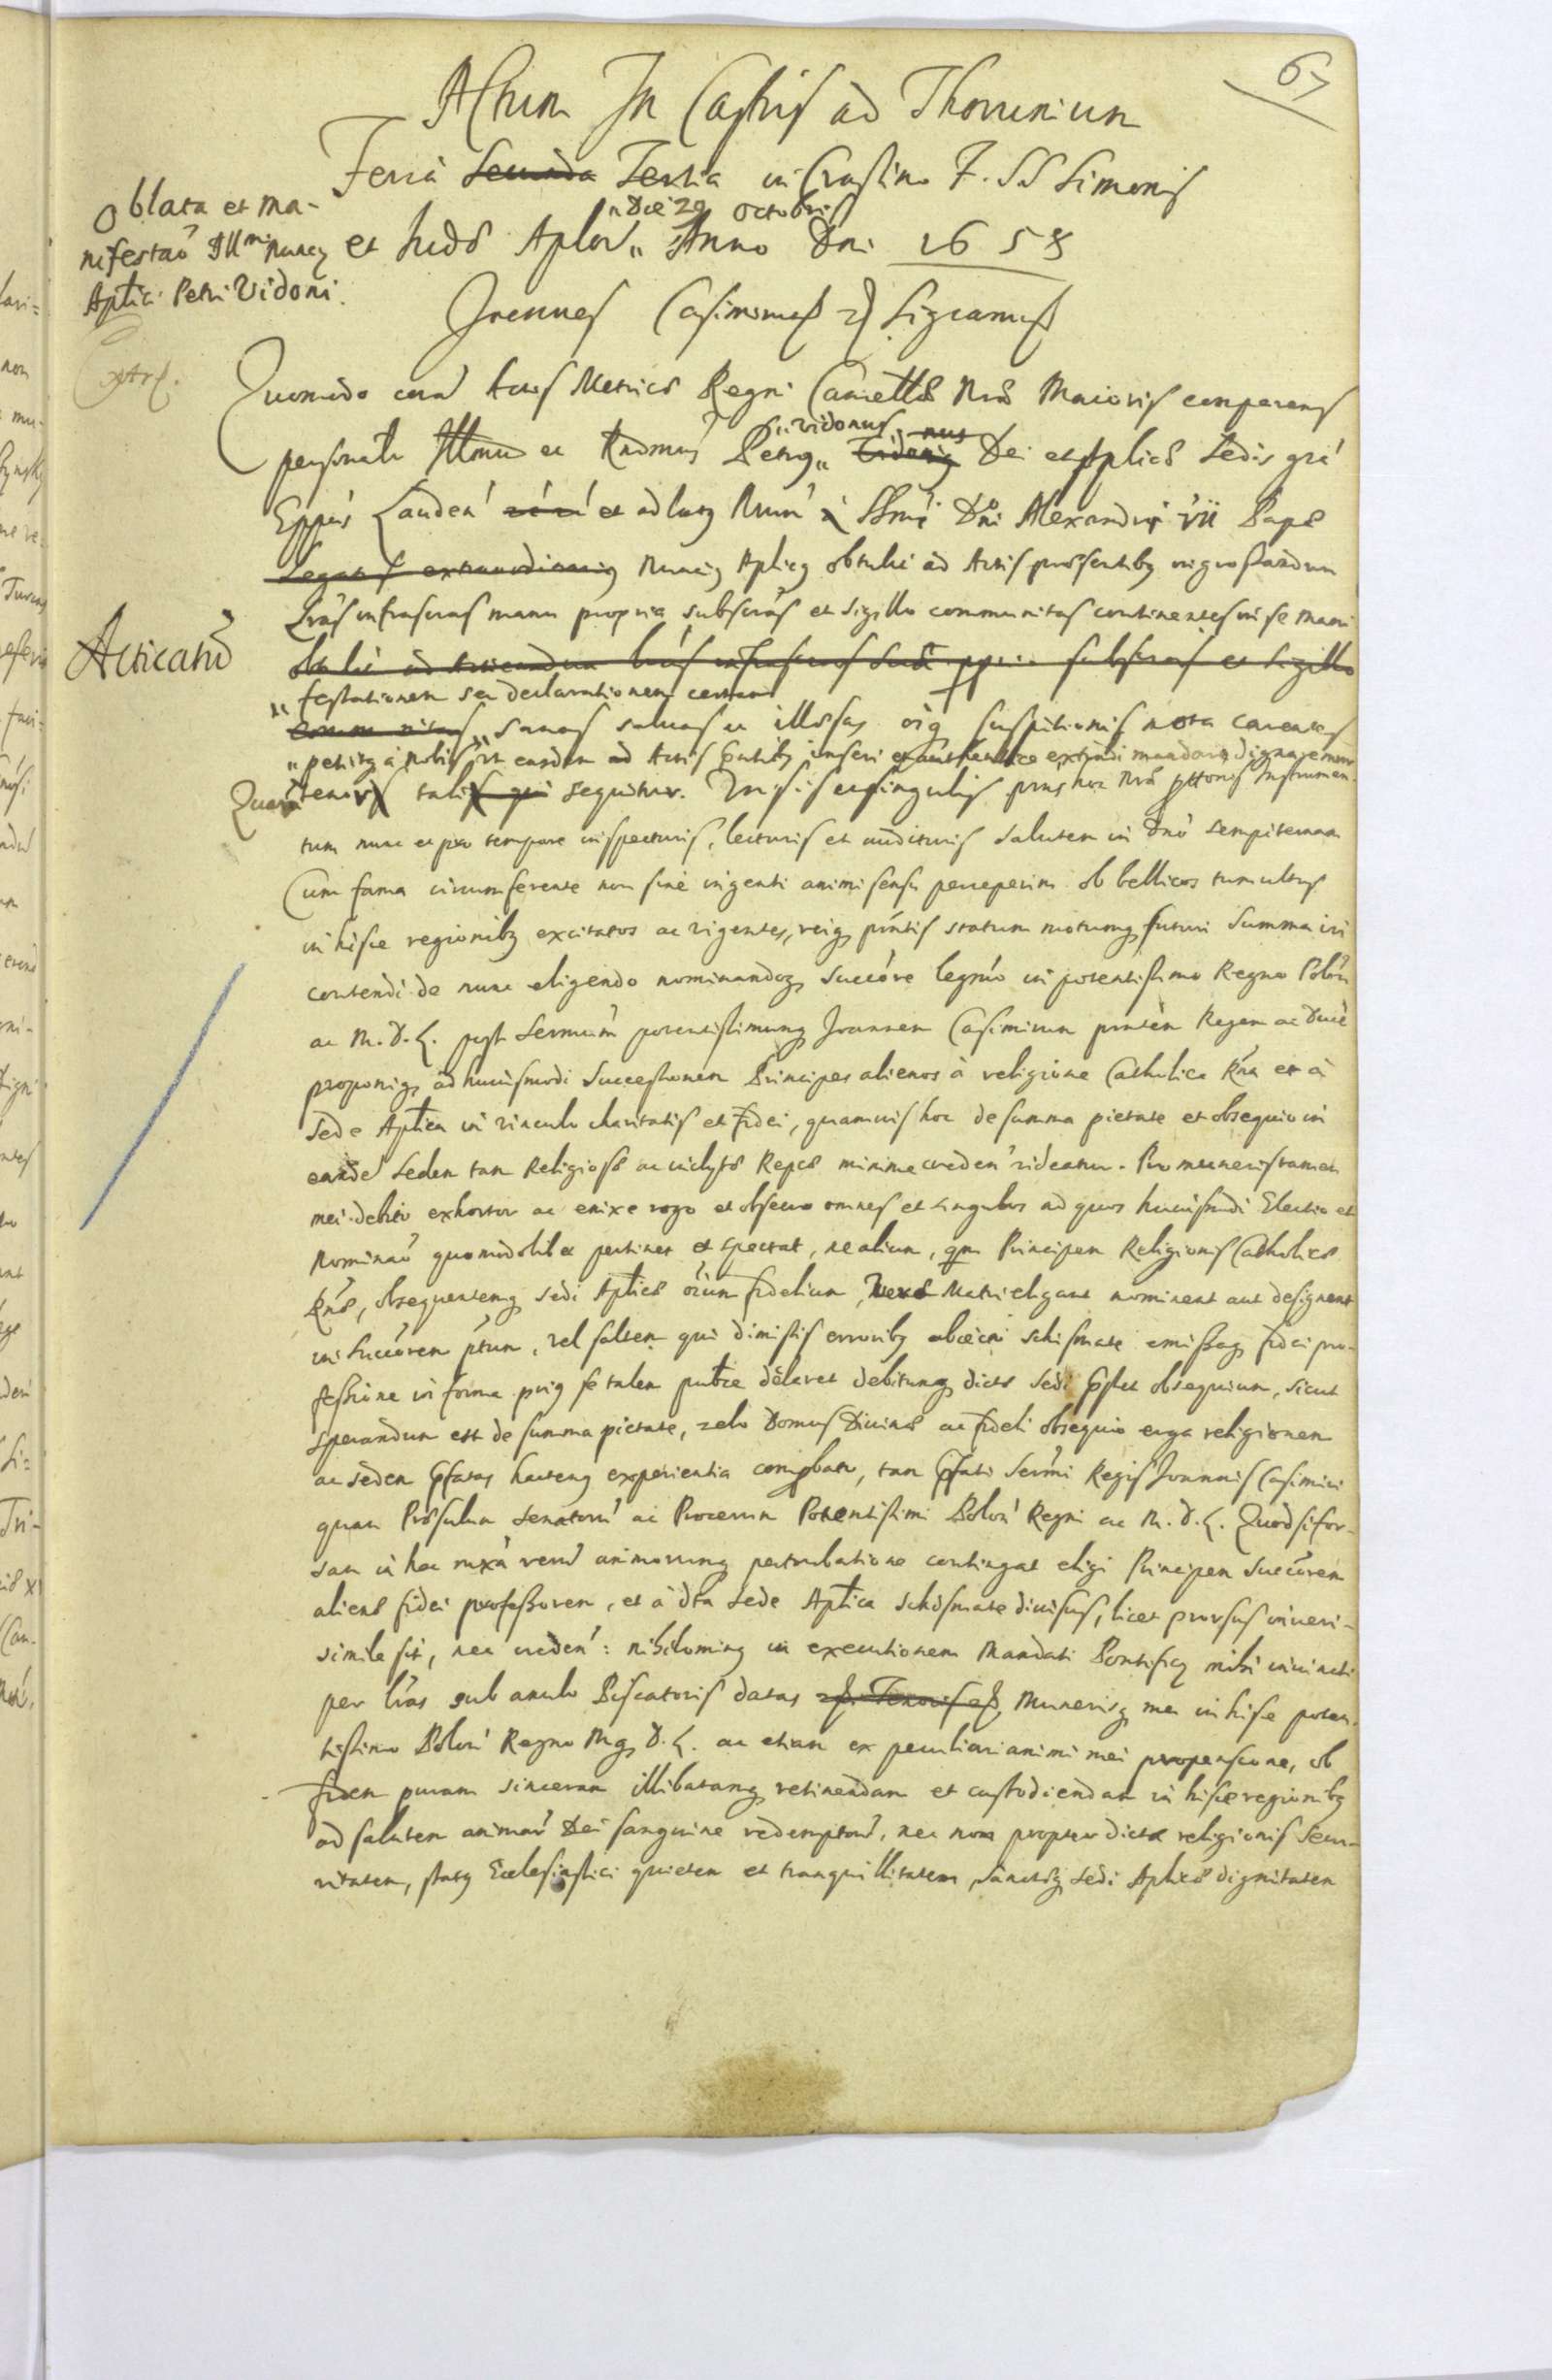 67
Actum In Castris ad Thorunium
Feria Secunda Tertia in Crastino F. SS Simonis
et Judæ Aplor̄ „ Die 29 Octobris „ Anno Dni 1658
Oblata et ma-
nifestao Illmi Nuncy
Aptici Petri Vidoni.
Joannes Casimirus Significamus
Extrs.
Quomodo coram Actis Metrices Regni Cancellæ Nræ Maioris comparens
personalr Illmus ac Rndmus Petrus „ Vidonus „ Dei et Aplicæ Sedis grá
Eppus Lauden et ad hoc Nrum à SSmi Dni Alexandri vii Papæ
Legatus extraordinarius Nuncius Aplicus obtulit ad Actis præsentibus ingrossandum
Acticatū
Lrás infrascras manu propria subscrás et Sigillo communitas continentes in se mani
obtulit ad acticandum lrás infrascras subscras et Sigillo
„ festationem seu declarationem certam
communitas „ sanas saluas ac illæsas oiq suspitionis nota carentes
„ petitq à nobis ut easdem ad Actis inseri et authentice extradi mandare dignaremur
Quarū tenor talis qui sequitur. Uniuersis et singulis præns hoc Nrá Instrumen-
tum nunc ac pro tempore inspecturis, lecturis et audituris Salutem in Dnō Sempiternam
Cum fama circumferente non sine ingenti animi sensu perceperim ob bellicos tumultus
in hisce regionibq excitatos ac vigentes, reiq pńtis statum motumq futuri Summa iri
contendi de nunc eligendo nominandoq Succōre legmo in potentissimo Regno Polon
ac M. D. L. post Sermum potentissimumq Joannem Casimirum pntem Regem ac Ducē
proponiq ad huiusmodi Successionem Principes alienos à religione Catholica Rna et à
Sede Aptica in vinculo charitatis et fidei, quamuis hoc de summa pietate et obsequio in
eande Sedem tam Religiosæ ac inclytæ Repcæ minime creden videatur. Pro muneris tamen
mei debito exhortor ac enixe rogo et obsecro omnes et singulos ad quos huiusmdi Electio et
Nominao quomodolibet pertinet et spectat, ne alium, qm Principem Religionis Catholicæ
Rnæ, obsequentemq Sedi Apticæ oium fidelium Matri eligant nominent aut designent
in Succōrem ptum, vel saltem qui dimissis erroribq abiecto schismate emissaq fidei pro-
fessione in forma priq se talem putce declaret debitumq dictæ Sedi obsequium, sicut
sperandum est de summa pietate, zelo Domus Diuinæ ac fideli obsequio erga religionem
ac Sedem pfatas hactenq experientia comprobato, tam pfati Sermi Regis Joannis Casimiri
quam Præsulum Senatorū ac Procerum Potentissimi Polon Regni ac M. D. L. Quod si for-
san in hac rerū animorumq perturbatione contingat eligi Principem Succōrem
alienæ fidei professorem, et à dta Sede Aptica schismate diuisus, licet prorsus inueri-
simile sit, nec creden: nihilominq in executionem Mandati Pontificq mihi iniuncti
per lras sub anulo Piscatoris datas Munerisq mei in hisce poten-
tissimo Polon Regno Mq. D. L. ac etiam ex peculiari animi mei propensione, ob
fidem puram sinceram illibatamq retinendam et custodiendam in hisce regionibq
ad salutem animar Dei sanguine redemptorū, nec non propter dictæ religionis Secu-
ritatem, statq Ecclesiastici quietem et tranquillitatem Sanctæq Sedi Aplicæ dignitatem